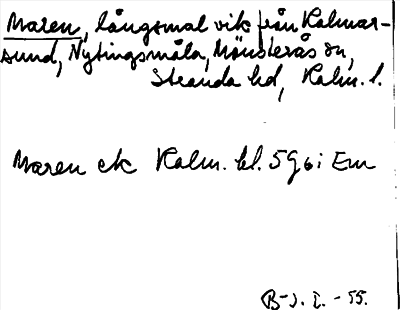 Maren, långsmal vik från Kalmar-
sund, Nytingsmåla, Mönsterås sn,
Stranda hd, Kalm. l.
Maren ek Kalm. bl. 5 G 6 i Em
B-J. I. - 55.